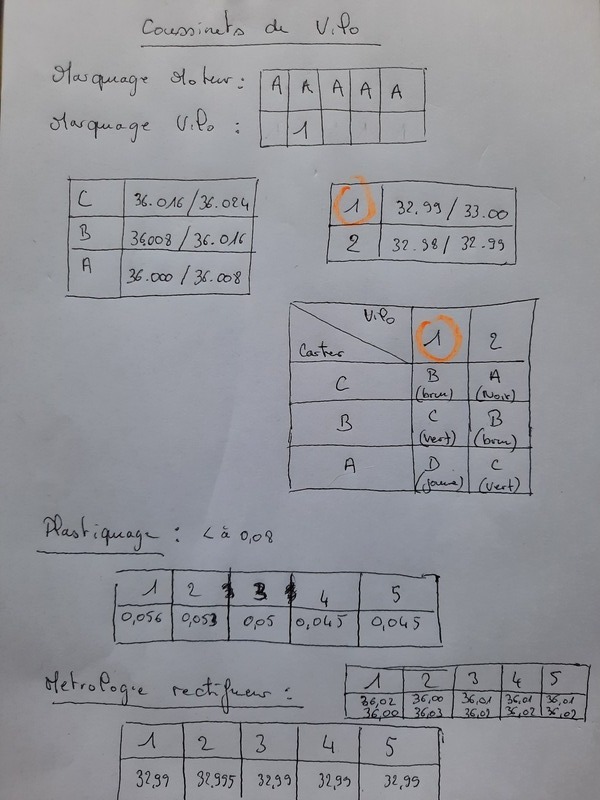 Coussinets de Vilo
Marquage Moteur : A A A A A
Marquage Vilo : 1
C 36.016 / 36.024
B 36008 / 36.016
A 36.000 / 36.008
1 32.99 / 33.00
2 32.98 / 32.99
Vilo
Carter 1 2
C B (brun) A (Noir)
B C (vert) B (brun)
A D (jaune) C (vert)
Plastiquage : < à 0,08
1 2 3 4 5
0,056 0,053 0,05 0,045 0,045
Metrologie rectifieur :
1 2 3 4 5
36,02 36,00 36,01 36,01 36,01
36,00 36,03 36,02 36,02 36,02
1 2 3 4 5
32,99 32,995 32,99 32,99 32,99